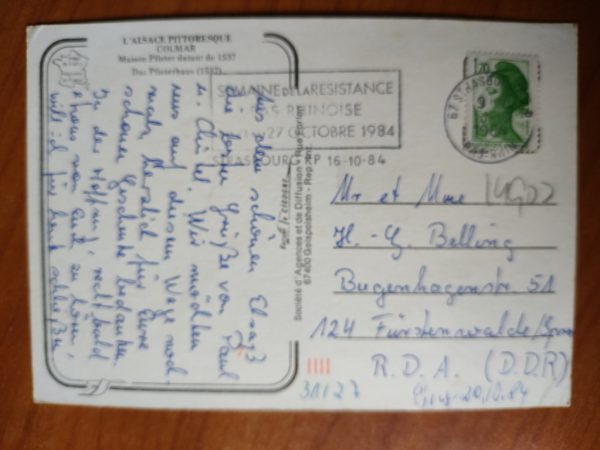 L'ALSACE PITTORESQUE
COLMAR
Maison Pfister datant de 1537
Das Pfisterhaus (1537)
Aus dem schönen Elsaß
die besten Grüße von Paul
u. Christel. Wir möchten
uns auf diesem Wege noch
mals herzlich für Eure
schönen Geschenke bedanken.
In der Hoffnung, recht bald
etwas von Euch zu hören,
will ich für heut schließen
SEMAINE de LA RESISTANCE
BAS-RHINOISE
27 OCTOBRE 1984
STRASBOURG RP 16-10-84
1,70
67 STRASBOURG
BAS-RHIN
Société d'Agences et de Diffusion - Rue Forlen
67400 Geispolsheim - Rep. Int.
Mr et Mme
H.-G. Belling
Bugenhagenstr 51
124 Fürstenwalde/Spree
R.D.A. (D.D.R)
31127
20.10.84